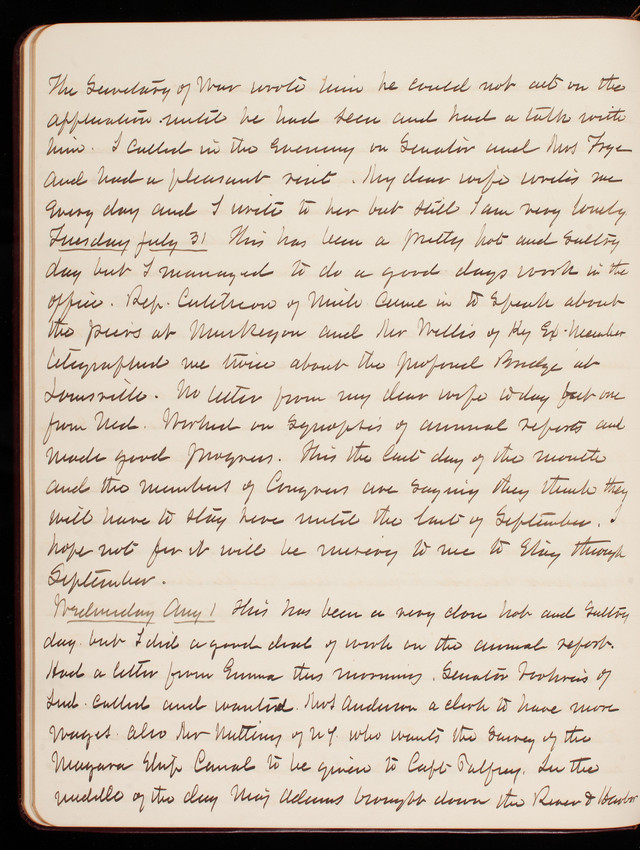 The Secretary of War wrote him he could not act on the
application until he had seen and had a talk with
him. I called in the evening on Senator and Mrs Frye
and had a pleasant visit. My dear wife writes me
every day and I write to her but still I am very lonely
Tuesday July 31 This has been a pretty hot and sultry
day but I managed to do a good days work in the
office. Rep. Cutcheon of Mich. came in to speak about
the piers at Muskegon and Mr Willis of Ky Ex-Member
telegraphed me twice about the proposed Bridge at
Louisville. No letter from my dear wife today but one
from Ned. Worked on Synopsis of annual reports and
made good progress. This the last day of the month
and the members of Congress are saying they think they
will have to stay here until the last of September. I
hope not for it will be misery to me to stay through
September.
Wednesday Aug 1 This has been a very close hot and sultry
day but I did a good deal of work on the annual report.
Had a letter from Emma this morning. Senator Vorheis of
Ind. called and wanted Mrs Anderson a clerk to have more
wages. also Mr Nutting of N.Y. who wants the survey of the
Niagara Ship Canal to be given to Capt Palfrey. In the
middle of the day Maj Adams brought down the River & Harbor